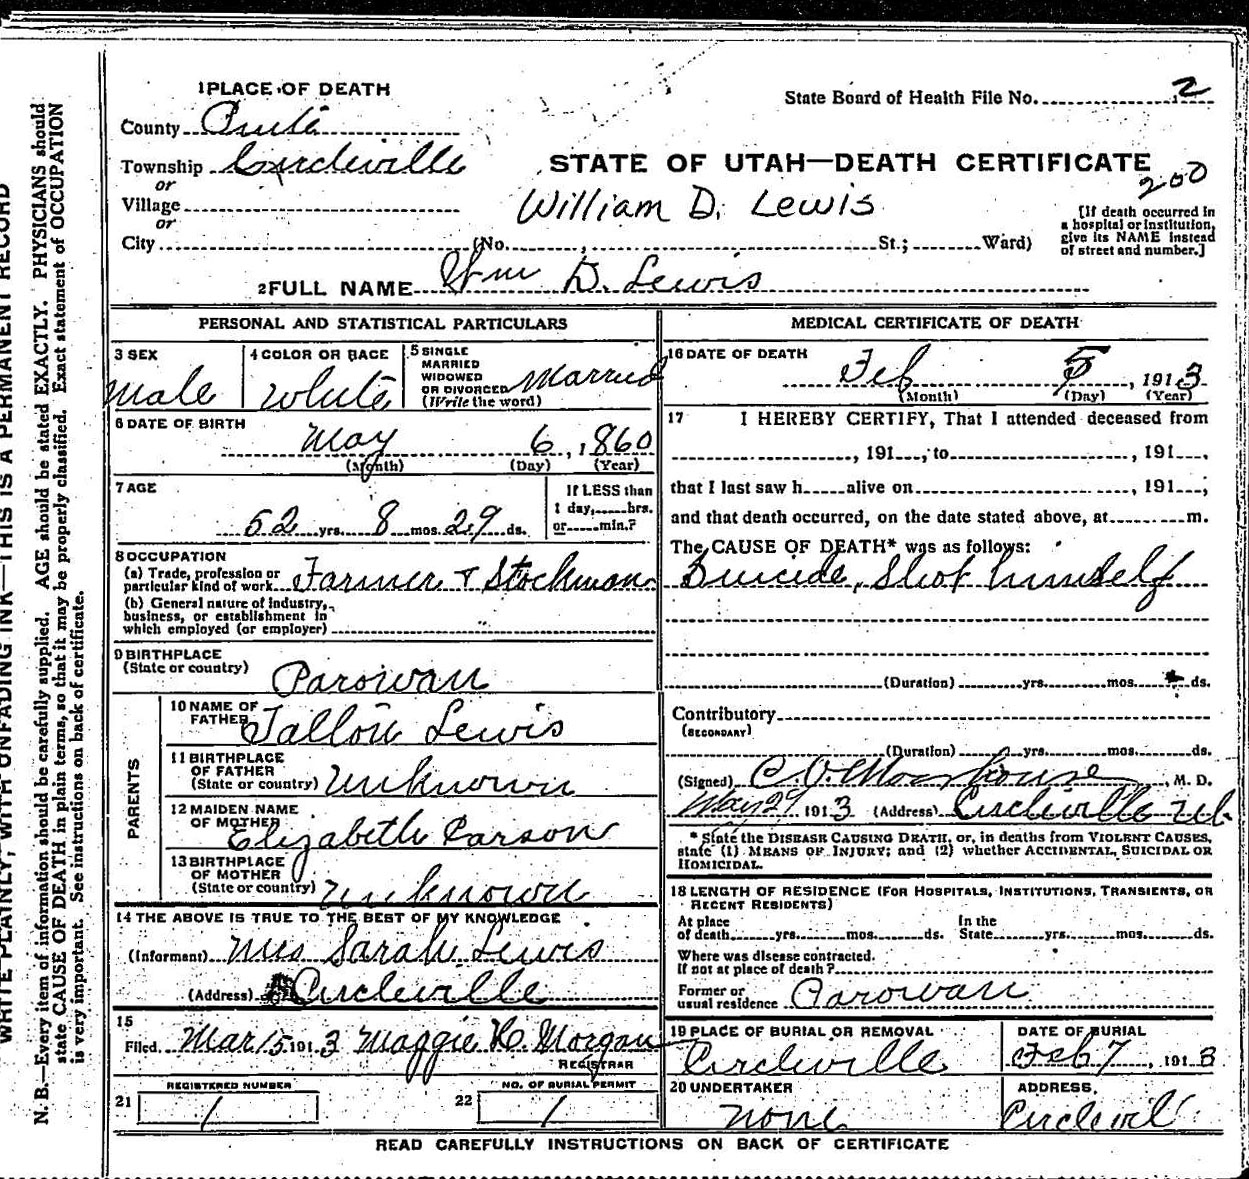 1 PLACE OF DEATH
State Board of Health File No. 2
County Piute
Township Circleville
or
Village
or
City (No. , St.; Ward)
STATE OF UTAH—DEATH CERTIFICATE
200
William D. Lewis
[If death occurred in
a hospital or institution,
give its NAME instead
of street and number.]
2 FULL NAME Wm D. Lewis
PERSONAL AND STATISTICAL PARTICULARS
3 SEX
Male
4 COLOR OR RACE
White
5 SINGLE
MARRIED
WIDOWED
OR DIVORCED
(Write the word)
Married
6 DATE OF BIRTH
May 6, 1860
(Month) (Day) (Year)
7 AGE
52 yrs. 8 mos. 29 ds.
If LESS than
1 day, hrs.
or min.?
8 OCCUPATION
(a) Trade, profession or
particular kind of work Farmer & Stockman
(b) General nature of industry,
business, or establishment in
which employed (or employer)
9 BIRTHPLACE
(State or country) Parowan
PARENTS
10 NAME OF
FATHER Tallon Lewis
11 BIRTHPLACE
OF FATHER
(State or country) unknown
12 MAIDEN NAME
OF MOTHER
Elizabeth Carson
13 BIRTHPLACE
OF MOTHER
(State or country) unknown
14 THE ABOVE IS TRUE TO THE BEST OF MY KNOWLEDGE
(Informant) Mrs Sarah Lewis
(Address) Circleville
15
Filed Mar 15 1913 Maggie H. Morgan
REGISTRAR
REGISTERED NUMBER
21 1
NO. OF BURIAL PERMIT
22 1
MEDICAL CERTIFICATE OF DEATH
16 DATE OF DEATH
Feb 5, 1913
(Month) (Day) (Year)
17 I HEREBY CERTIFY, That I attended deceased from
, 191 , to , 191 ,
that I last saw h alive on , 191 ;
and that death occurred, on the date stated above, at m.
The CAUSE OF DEATH* was as follows:
Suicide, Shot himself
(Duration) yrs. mos. ds.
Contributory
(SECONDARY)
(Duration) yrs. mos. ds.
(Signed) , M. D.
1913 (Address) Circleville
* State the DISEASE CAUSING DEATH, or, in deaths from VIOLENT CAUSES,
state (1) MEANS OF INJURY; and (2) whether ACCIDENTAL, SUICIDAL OR
HOMICIDAL.
18 LENGTH OF RESIDENCE (FOR HOSPITALS, INSTITUTIONS, TRANSIENTS, OR
RECENT RESIDENTS)
At place
of death yrs. mos. ds.
In the
State yrs. mos. ds.
Where was disease contracted.
If not at place of death?
Former or
usual residence Parowan
19 PLACE OF BURIAL OR REMOVAL
Circleville
DATE OF BURIAL
Feb 7, 1913
20 UNDERTAKER
none
ADDRESS
Circlevil
READ CAREFULLY INSTRUCTIONS ON BACK OF CERTIFICATE
WRITE PLAINLY, WITH UNFADING INK—THIS IS A PERMANENT RECORD
N. B.—Every item of information should be carefully supplied. AGE should be stated EXACTLY. PHYSICIANS should
state CAUSE OF DEATH in plain terms, so that it may be properly classified. Exact statement of OCCUPATION
is very important. See instructions on back of certificate.